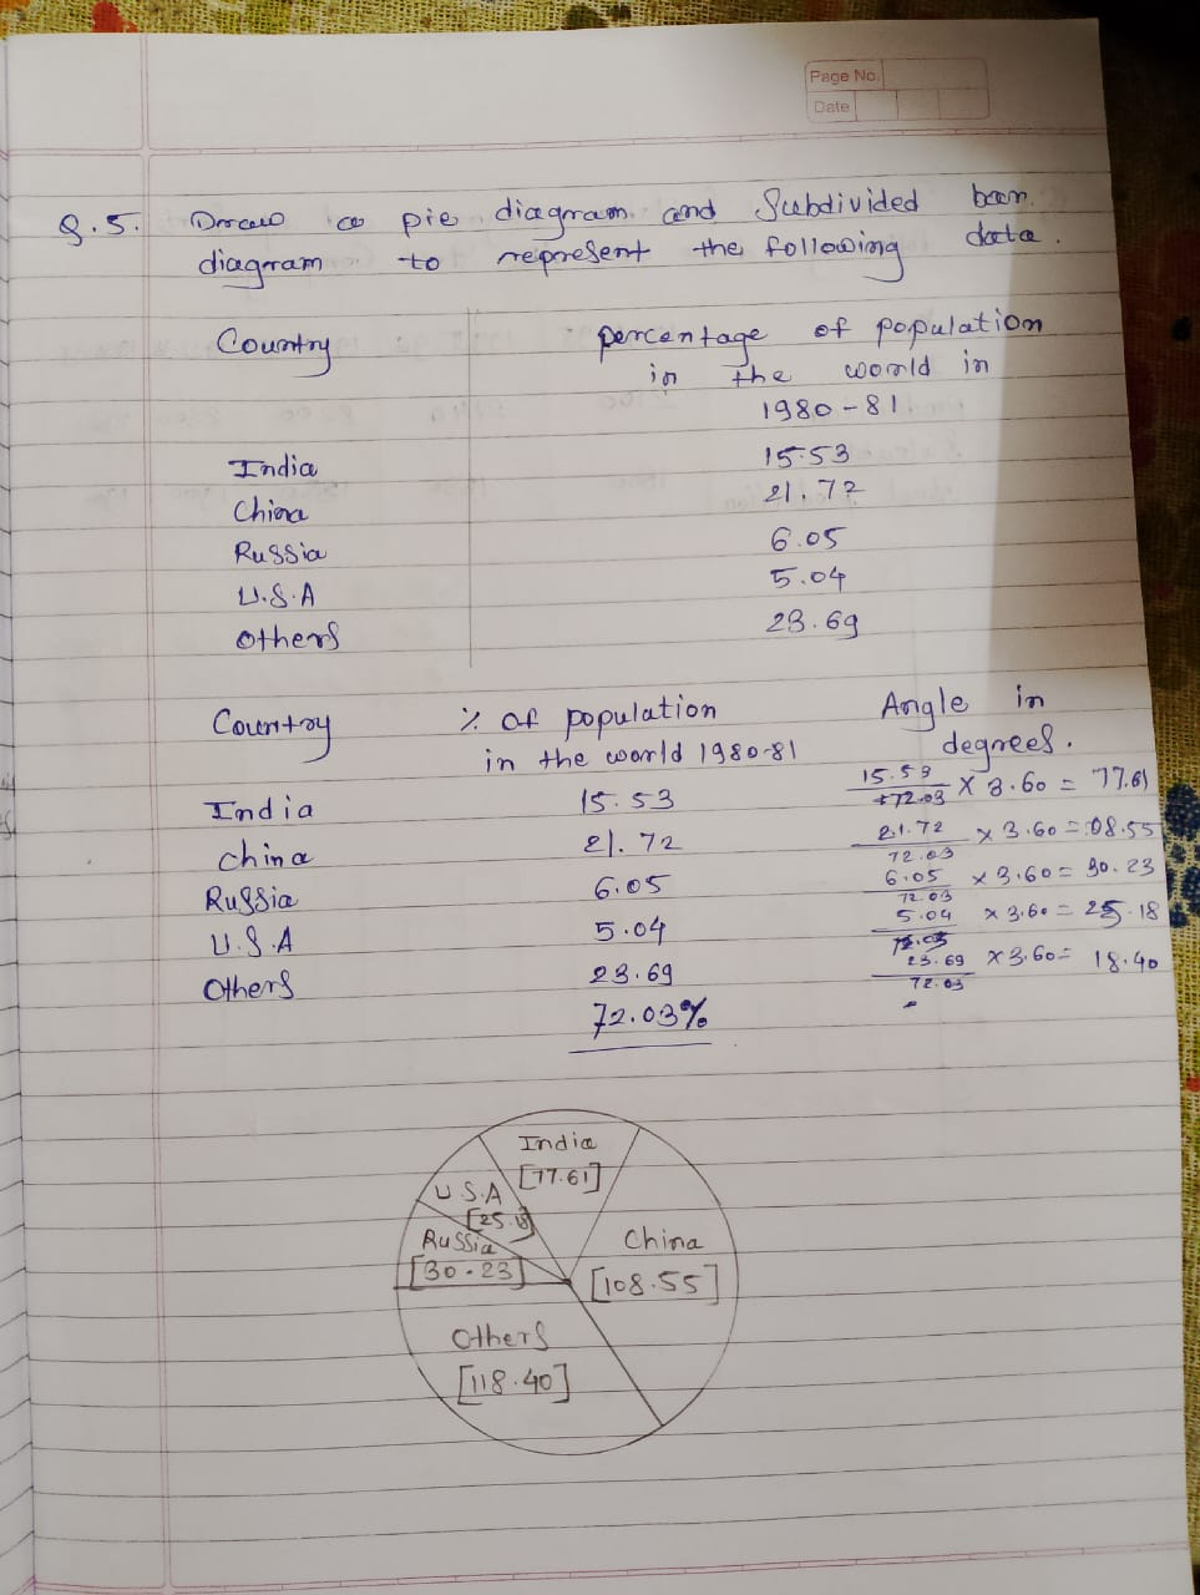 Page No.
Date
Q.5. Draw a pie diagram and Subdivided bar
diagram to represent the following data.
Country percentage of population
in the world in
1980-81
India 15.53
China 21.72
Russia 6.05
U.S.A 5.04
Others 23.69
Country % of population Angle in
in the world 1980-81 degrees.
India 15.53 15.53/72.03 × 3.60 = 77.61
China 21.72 21.72/72.03 × 3.60 = 08.55
Russia 6.05 6.05/72.03 × 3.60 = 30.23
U.S.A 5.04 5.04/72.03 × 3.60 = 25.18
Others 23.69 23.69/72.03 × 3.60 = 18.40
72.03%
India
[77.61]
U.S.A
[25.18]
Russia
[30.23]
China
[108.55]
Others
[118.40]